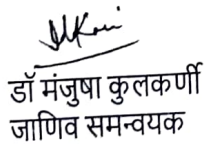 डॉ मंजुषा कुलकर्णी
जाणिव समन्वयक